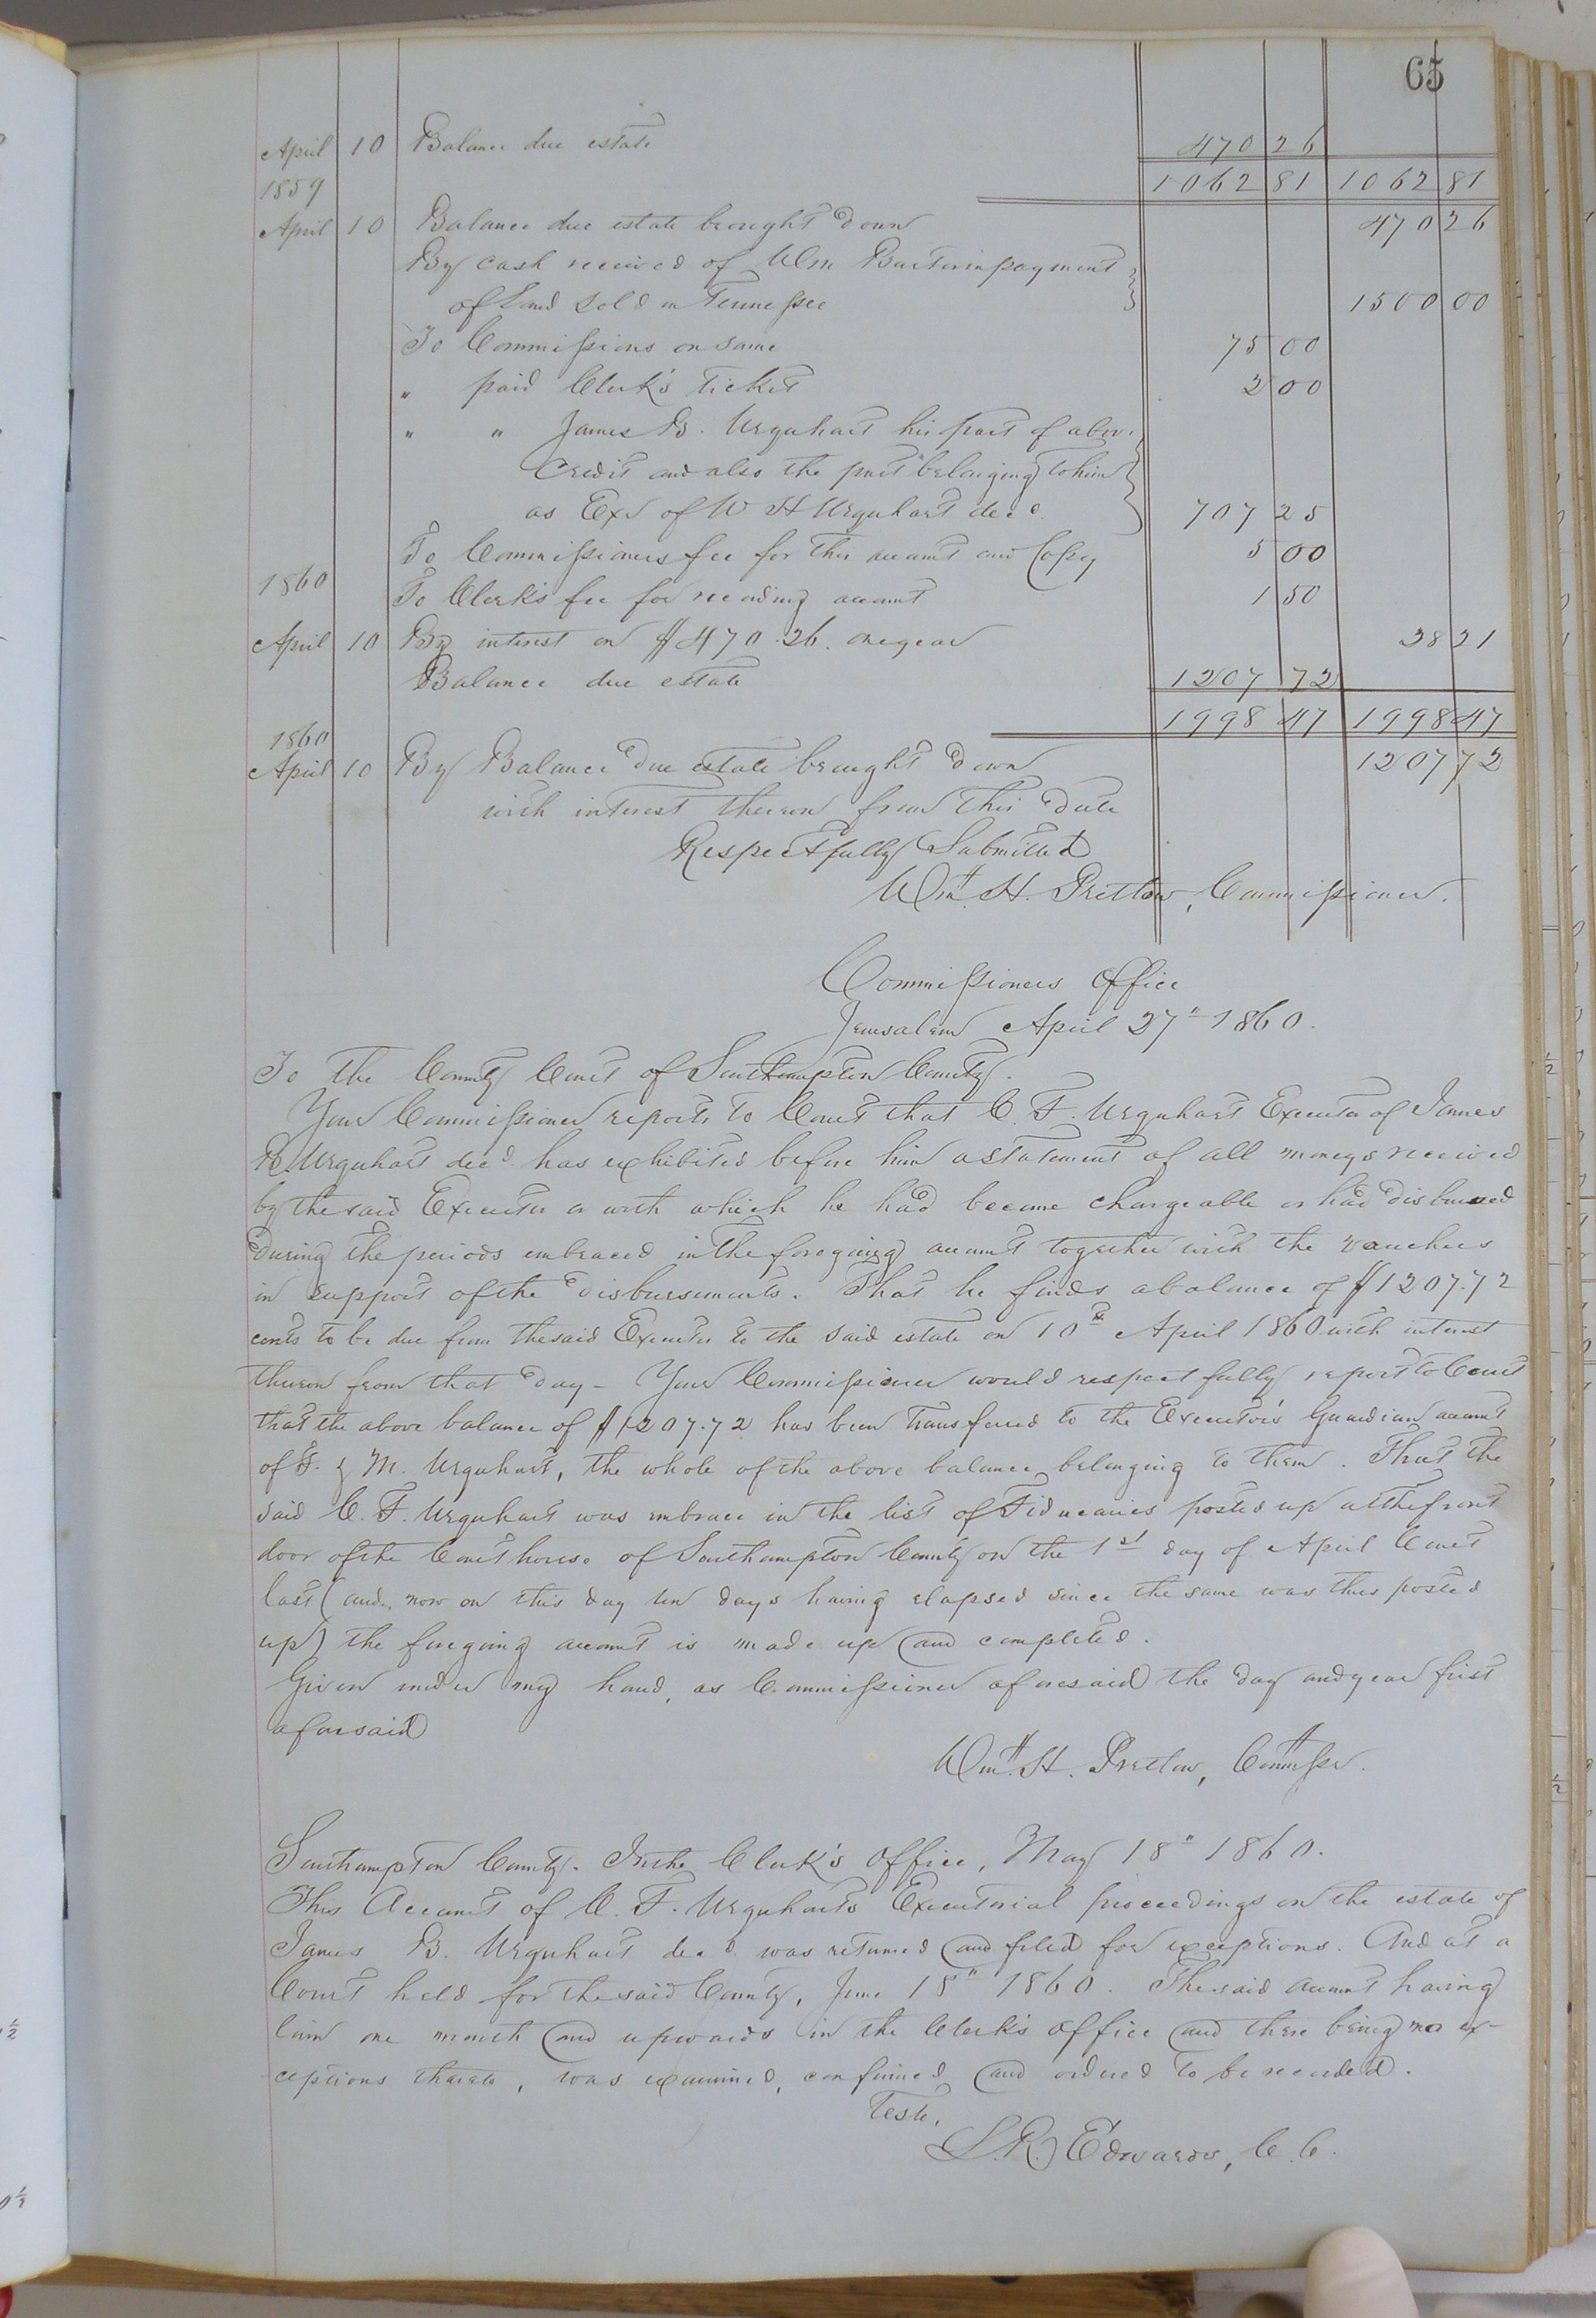 65
April 10 Balance due estate 470 26
1062 81 1062 81
1859
April 10 Balance due estate brought down 470 26
By cash received of Wm in payment
of Land sold in Tennessee 1500 00
To Commissions on same 75 00
" paid Clerk's Ticket 2 00
" " James B. Urquhart his part of above
credit and also the part belonging to him
as Exr of W H Urquhart decd. 707 25
To Commissioners fee for this account and Copy 5 00
1860
To Clerk's fee for recording account 1 50
April 10 By interest on $470.26. one year 28 21
Balance due estate 1207 72
1998 47 1998 47
1860
April 10 By Balance due estate brought down 1207 72
with interest thereon from this date
Respectfully Submitted
Wm. H. Pretlow, Commissioner.
Commissioners Office
Jerusalem April 27" 1860.
To the County Court of Southampton County.
Your Commissioner reports to Court that C. F. Urquhart Executor of James
B. Urquhart decd. has exhibited before him a statement of all moneys received
by the said Executor or with which he had become chargeable or had disbursed
during the periods embraced in the foregoing account together with the vouchers
in support of the disbursements. That he finds a balance of $1207.72
cents to be due from the said Executor to the said estate on 10th April 1860 with interest
thereon from that day - Your Commissioner would respectfully report to Court
that the above balance of $1207.72 has been transferred to the Executor's Guardian account
of F. & M. Urquhart, the whole of the above balance belonging to them. That the
said C. F. Urquhart was embrace in the list of Fiduciaries posted up at the front
door of the Court house of Southampton County on the 1st day of April Court
last (and now on this day ten days having elapsed since the same was thus posted
up) the foregoing account is made up and completed.
Given under my hand, as Commissioner aforesaid the day and year first
aforesaid
Wm. H. Pretlow, Commissr.
Southampton County. In the Clerk's Office, May 18" 1860.
This Account of C. F. Urquharts Executorial proceedings on the estate of
James B. Urquhart decd. was returned and filed for exceptions. And at a
Court held for the said County, June 18" 1860. The said account having
lain one month and upwards in the Clerk's Office and there being no ex-
ceptions thereto, was examined, confirmed and ordered to be recorded.
Teste,
L. R. Edwards, C. C.